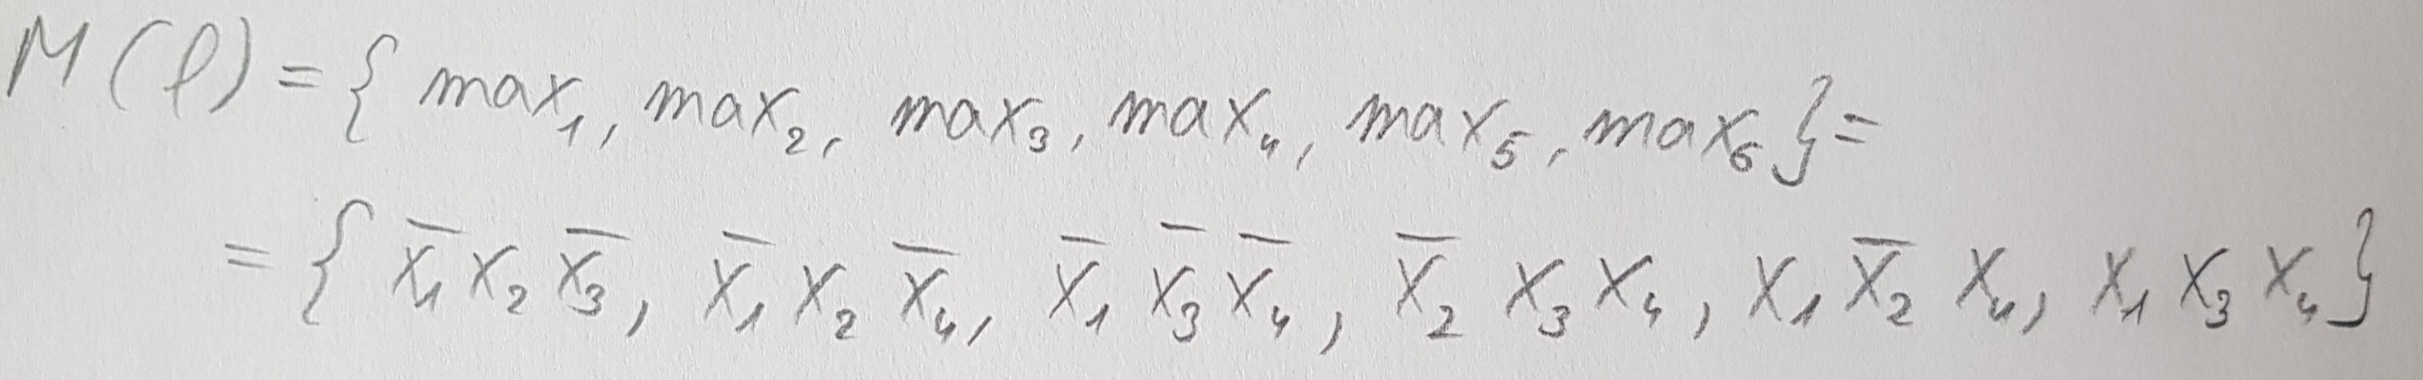 M(f) = { max₁, max₂, max₃, max₄, max₅, max₆ } =
= { x̅₁ x₂ x̅₃, x̅₁ x₂ x̅₄, x̅₁ x̅₃ x̅₄, x̅₂ x₃ x₄, x₁ x̅₂ x₄, x₁ x₃ x₄ }